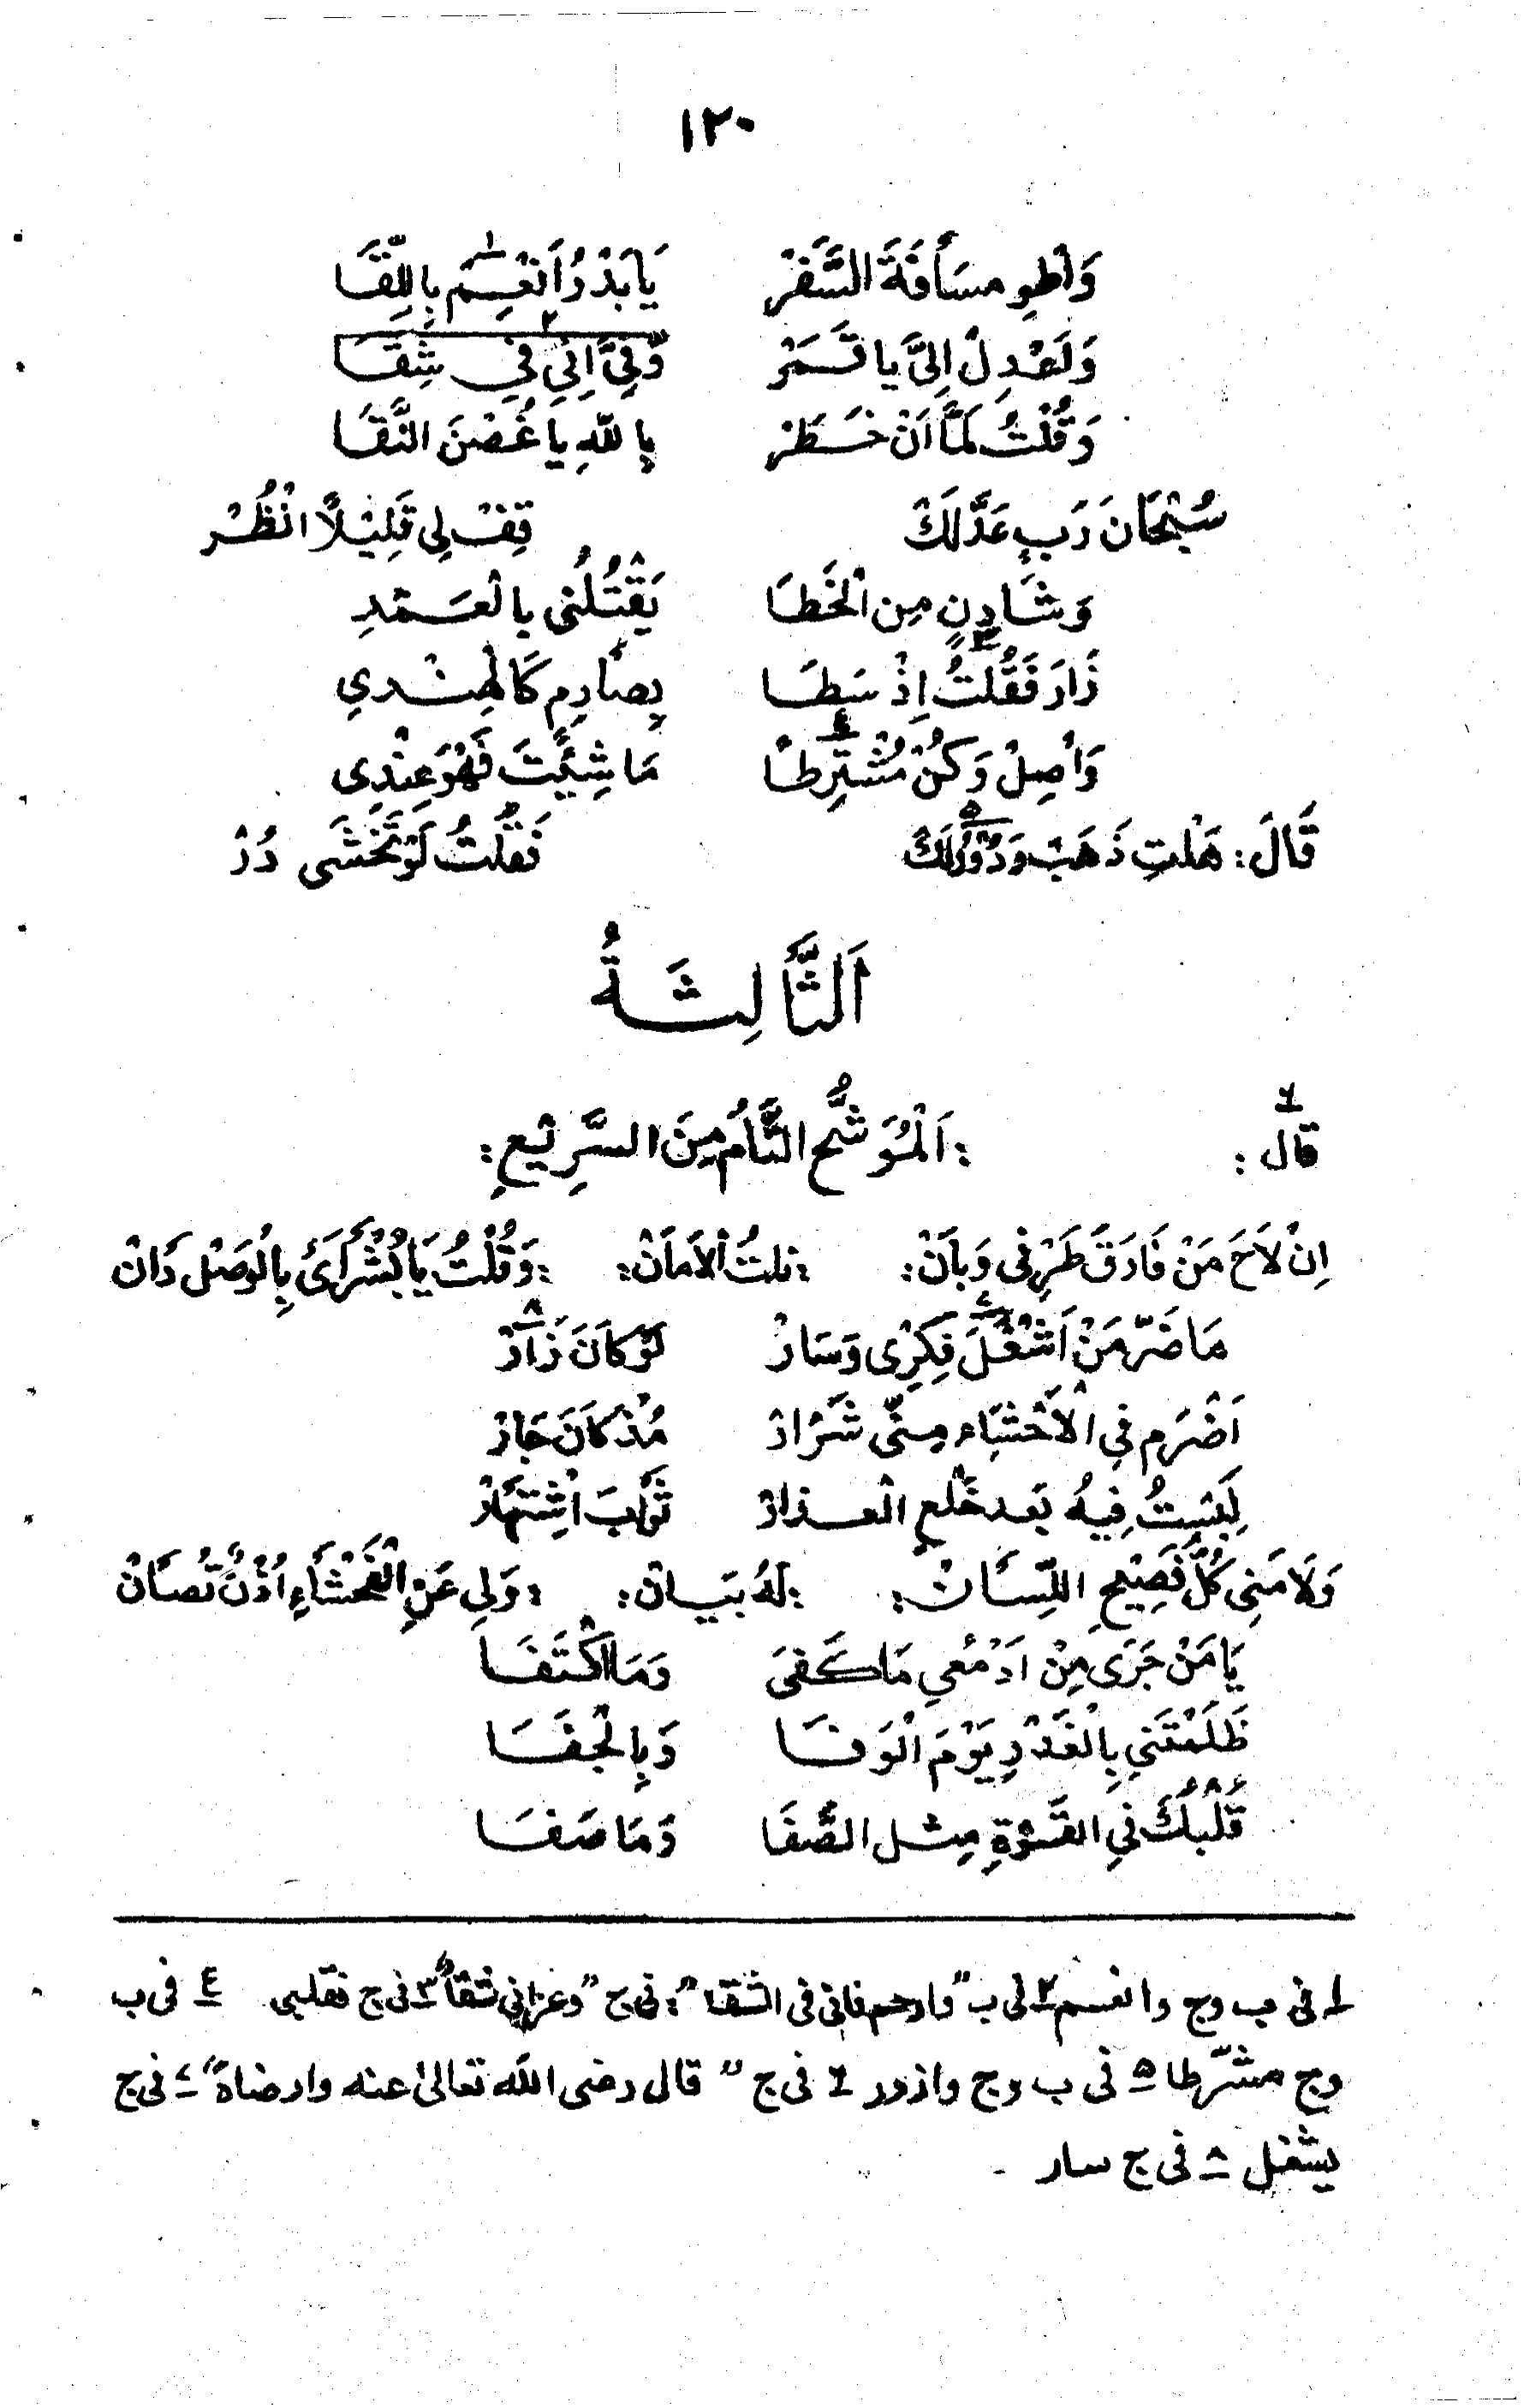 ١٢٠
وَاطْوِ مسَافَةَ السَّفَرْ يَا بَدْرُ اَنْعِمَ١ بِاللِّقَا
وَلَعْدِلْ اِلىَّ يا قَمَرْ وَّفِيَّ اِنِي فِي شِقَا٢
وَقُلْتُ لَمَّا اَنْ خَطَرْ بِاللهِ يَا غُصْنَ النَّقَا
سُبْحَانَ رَبٍ عَدَّلَكْ قِفْ لِي قَلِيْلاً انْظُرْ
وَشَادِنٍ مِن الْخَطَا يَقْتُلُنى بالْعَمْدِ
زَارَ فَقُلْتُ٣ اِذْ سَطَا بِصَارِمٍ كَالْهِنْدِي
وَاصِلْ وَكُنْ مُشْتَرِطاً٤ مَا شِئْتَ فَهْوَ عِنْدِى
قَالَ: هَلْتِ ذَهَبْ وَدُوْرُلَكْ٥ فَقُلْتُ لَوْ تَخْشَى دُرْ
اَلثَّالِثَةُ
قال٦ : :اَلْمُوَشَّحُ التَّامُ مِنَ السَّرِيْعِ:
اِنْ لاَحَ مَنْ فَارَقَ طَرْفِى وَبَانْ: :نلتُ الاَمَانْ: :وَقُلْتُ يَا بُشْرَاىَ بِالْوَصْل دَانْ
مَا ضَرّ مَنْ اَشْغَلَ٧ فِكرِى وَسَارْ لَوْ كَانَ زَارْ٨
اَضْرَم فِي الْاَحْشَاء مِنّى شَرَارْ مُذْ كَانَ جَارْ
لَبِسْتُ فِيهُ بَعد خَلْعِ الْعذارْ ثَوْبَ اشْتِهَارْ
وَلَامَنِى كُلُّ فَصِيْحِ اللِّسَانْ: :لَهُ بَيَانْ: :وَلِي عَنِ الْفَحْشَاءِ اُذْنٌ تُصَانْ
يَا مَنْ جَرَى مِنْ اَدْمُعِي مَا كَفىَ وَمَا اكْتَفَا
ظَلَمْتَنِي بِالْغَدْرِ يَوْمَ الْوَفَا وَبِالْجفَا
قُلْبُكَ فيِ القَسْوَةِ مِثل الصَّفَا وَمَا صَفَا
١ فى ب وج وانعم ٢ فى ب "وارحم فانى فى الشقا": فى ج "وعزانى شقا" ٣ فى ج فقلبى ٤ فى ب
وج مشرّطا ٥ فى ب وج وازور ٦ فى ج "قال رضى الله تعالىٰ عنه وارضاة" ٧ فى ج
يشغل ٨ فى ج سار ۔